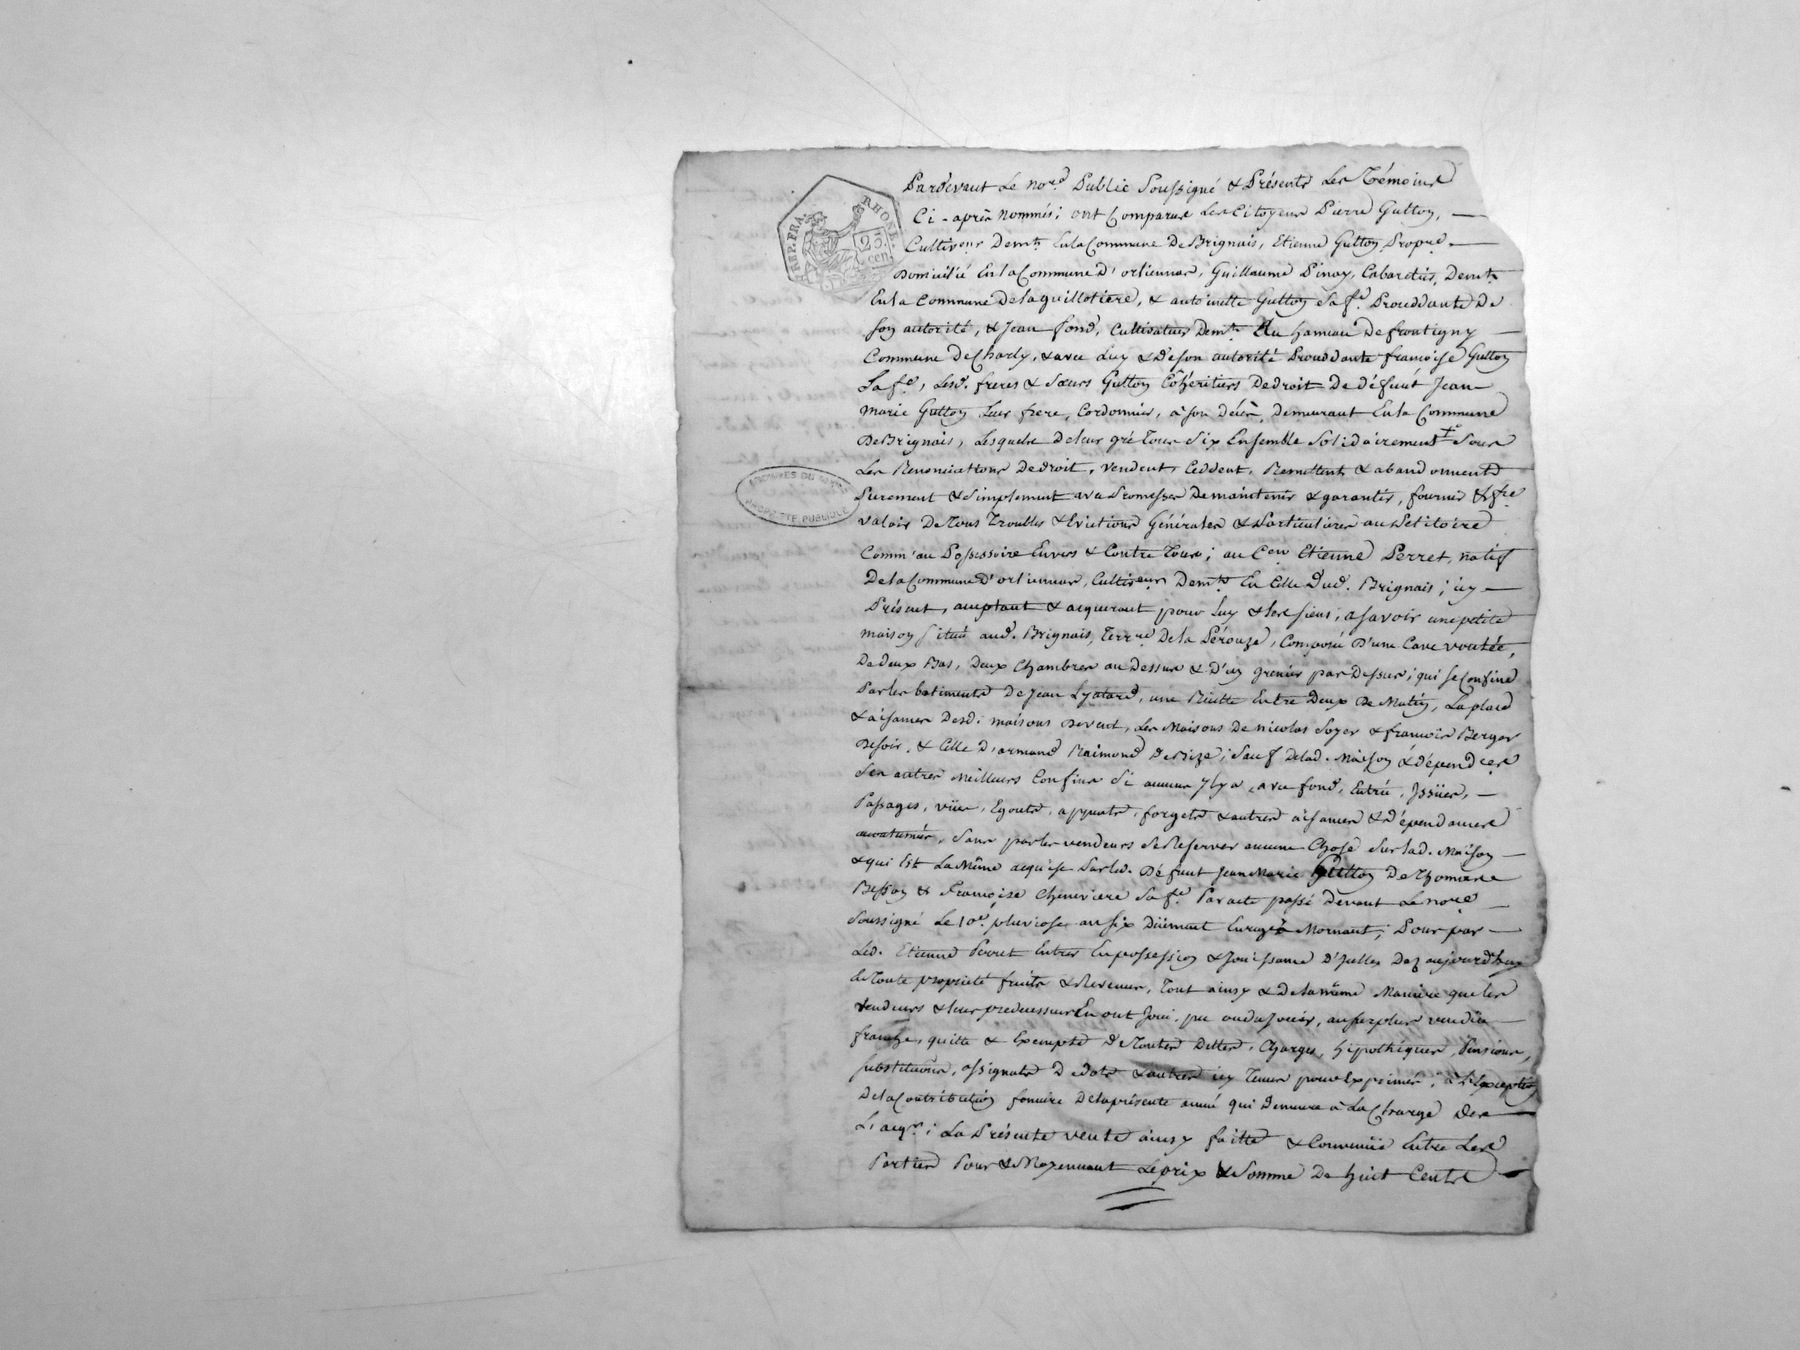 REP. FRA. RHONE. 25. cen.
Pardevant Le nore. Public Soussigné & Présents Les Témoins
Ci-après nommés; ont Comparus Les Citoyens Pierre Gutton,
Cultiveur Demt. En la Commune De Brignais, Etienne Gutton Propre.
Domicilié En la Commune D'orliennas, Guillaume Pinay, Cabaretier, Demt.
En la Commune De la guillotiere, & antoinette Gutton Sa fe. Procédante De
son autorité, & Jean fond, Cultivateur Demt. Au hameau De frontigny
Commune De Charly, & avec Luy & De son autorité Procédante françoise Gutton
Sa fe, Lesd. freres & Sœurs Gutton Cohéritiers De droit De défunt Jean
Marie Gutton Leur frere, Cordonnier, à son décès, Demeurant En la Commune
De Brignais, Lesquels De leur gré Tous Six Ensemble Solidairement Sous
Les Renonciations De droit, vendent, Ceddent, Remettent & abandonnent
Purement & Simplement avec Promesses De maintenir & garantir, fournir & fre
valoir De Tous Troubles & Evictions Générales & Particulieres au Petitoire
Comm'au Possessoire Envers & Contre Tous; au Cen Etienne Perret, natif
De la Commune D'orliennas, Cultiveur Demt. En Celle Dud. Brignais; icy
Présent, acceptant & acquerant pour Luy & Les siens, a savoir une petite
maison située aud. Brignais, Terre De la Pérouze, Composée D'une Cave voutée,
De deux Bas, Deux Chambres au Dessus & D'un grenier par Dessus; qui se Confine
Par les batiments De Jean Lyatard, une Ruette Entre Deux De Matin, La place
& aisances Desd. maisons Devent, Les Maisons De nicolas Soyer & françois Berger
De soir, & Celle D'armand Raimond De Bize; Sauf De lad. Maison & dépendces
Ses autres Meilleurs Confins Si aucuns y Ly a, avec fond, Entrée, Issües,
Passages, vües, Egouts, forgets & autres aisances & Dépendances
accoutumés, Sans par les vendeurs Se Reserver aucune Chose Sur lad. Maison
& qui Est La Même acquise Par led. Défunt Jean Marie Gutton De Thomas
Besson & Françoise Cheneviere Sa fe. Par acte passé Devant Le nore
Soussigné Le 10e. pluviose an six Düement Enregé à Mornant; Pour par
Led. Etienne Perret Entrer En possession & Jouissance D'icelles Dez aujourd'huy
De Toute propriété fruits & Revenus, Tout ainsy & De la même Maniere que les
vendeurs & leurs predecesseurs En ont Joui, pu ou du Jouir, au surplus vendüe
franche, quitte & Exempte De Toutes Dettes, Charges, hipothéques, Pensions,
substitutions, assignats De dots & autres icy Tenus pour Exprimés; à L'Exception
De la Contribution fonciere De la présente année qui Demeure à La Charge De
L'acqr; La Présente vente ainsy faitte & Convenüe Entre Les
Parties Pour & Moyennant Le prix & Somme De huit Cents
ARCHIVES DU RHONE
PROPRIETE PUBLIQUE